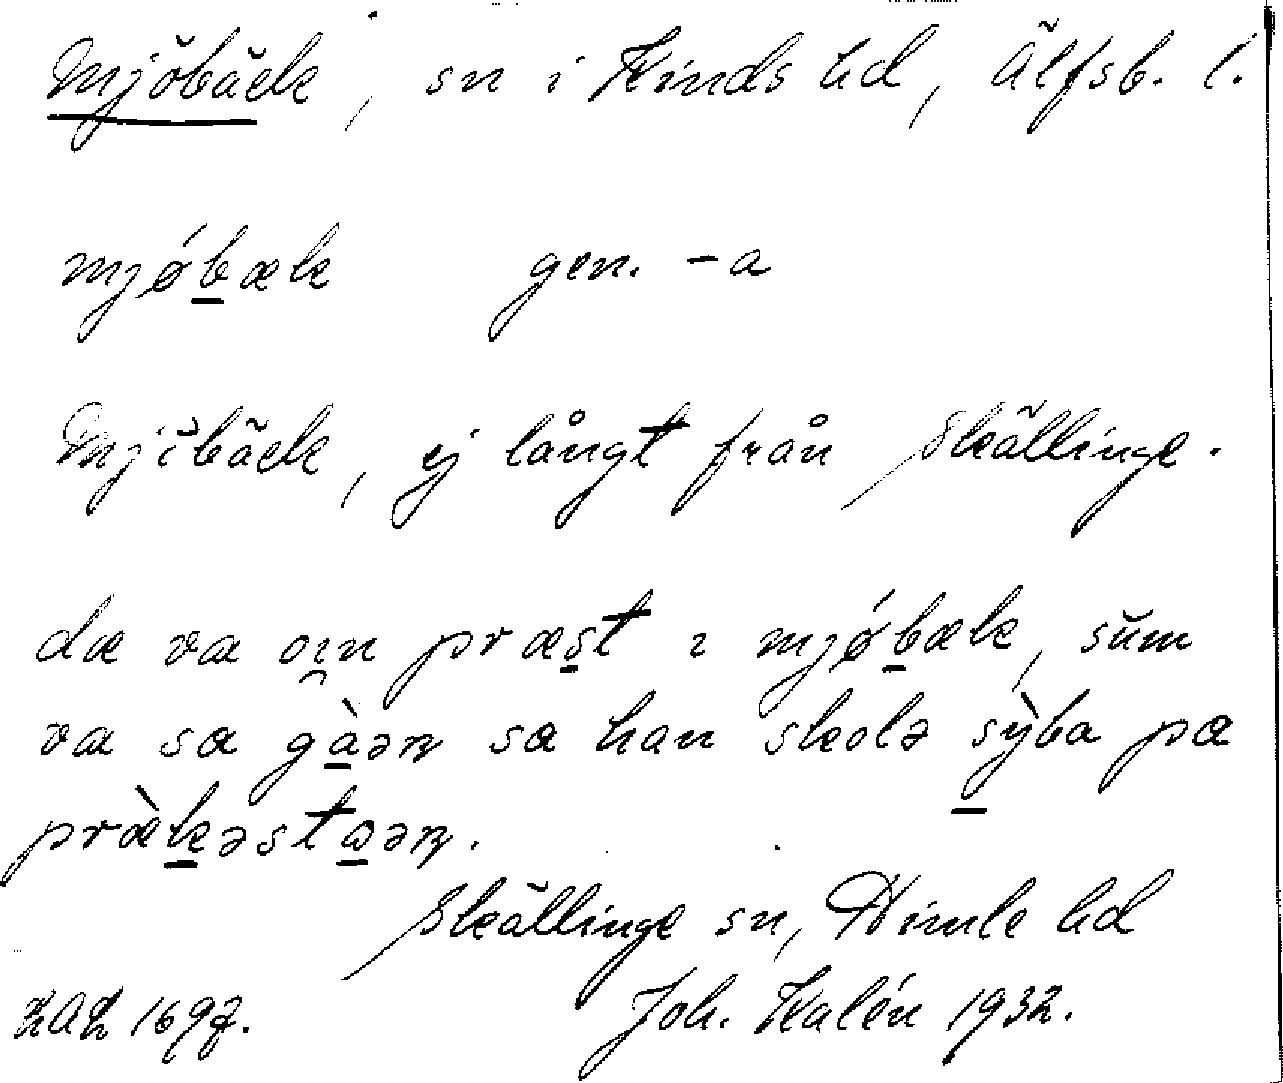 Mjöbäck, sn i Kinds hd, Älfsb. l.
mjǿb̲æk gen. -a
Mjöbäck, ej långt från Skällinge.
dæ va oi̯n præs̲t ɩ mjǿb̲æk, sŭm
va sa gà̲ən sa han skolə sỳ̲ba pa
præ̀k̲əsta̲ən.
Skällinge sn, Himle hd
LAL 1697. Joh. Kalén 1932.